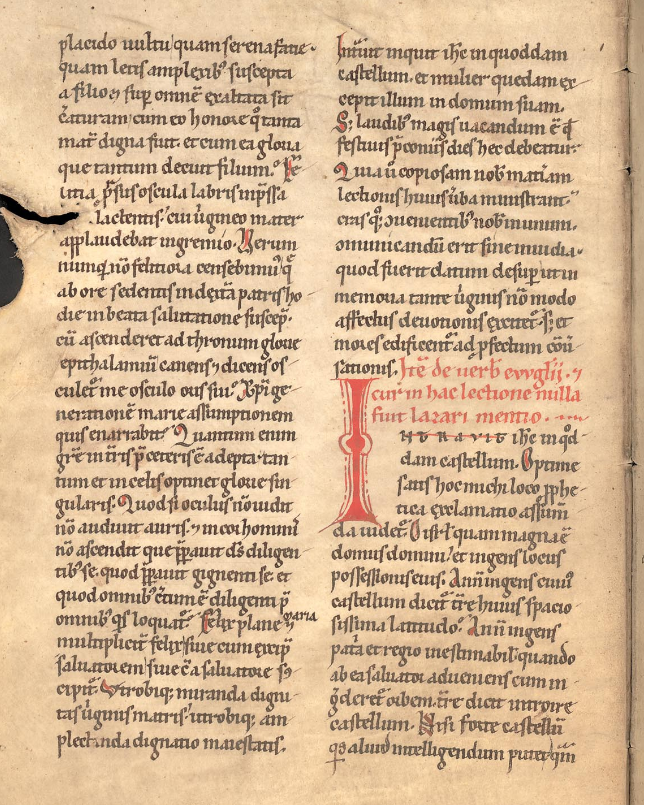 placido uultu quam serena facie.
quam letis amplexib; suscepta
a filio ⁊ sup omnē exaltata sit
c̄aturam/ cum eo honore q̄ tanta
mat̄ digna fuit. et cum ea gloria
que tantum decuit filium. Fe
licia p̄sus oscula labris inp̄ssa
lactentis. cui ũgineo mater
applaudebat in gremio. Verum
nunqͥ nō feliciora censebimꝰ q̄
ab ore sedentis in dext̄a patris ho
die in beata salutatione suscep̄.
cū ascenderet ad thronum glorie
epithalamiū canens ⁊ dicens os
culet̄ me osculo oris sui. Xp̄i ge
nerationē ⁊ marie assumptionem
quis enarrabit. Quantum enim
gr̄e in t̄ris p̄ ceteris ē adepta. tan
tum et in celis optinet glorie sin
gularis. Quod si oculus nō uidit
nō audiuit auris. ⁊ in cor hominis
nō ascendit que p̄parauit ds̄ diligen
tib; se. quod p̄parauit gignenti se. et
quod omnib; c̄tum ē diligenti p̄
omnib; qͥs loquat̄. Felix plane maria
multiplicit̄ felix/ siue cum excip̄
saluatorem/ siue c̄ a saluatore s⁊
cipit̄. Vtrobiq; miranda digni
tas ũginis matris/ utrobiq; am
plectenda dignatio maiestatis.
Intͣuit inquit ihc̄ in quoddam
castellum. et mulier quedam ex
cepit illum in domum suam.
S; laudib; magis uacandum ē qͥ
festiuis p̄coniis dies hec debeatur.
Quia ũ copiosam nob̄ mat̄iam
lectionis huius ũba ministrant.
cras q; conuenientib; nob̄ in unum.
omunicandū erit sine inuidia.
quod fuerit datum desup̄ ut in
memoria tante ũginis nō modo
affectus deuotionis excitet̄. s; et
mores edificent̄ ad p̄fectum cōu̅
sationis. Itē de uerb̄ ewglij. ⁊
cur in hac lectione nulla
fiat lazari mentio.
INTRAVIT ihc̄ in qͦd
dam castellum. Optime
satis hoc michi loco p̄phe
tica exclamatio assum̄
da uidet̄. O isrl̄ quam magna ē
domus domini/ et ingens locus
possessionis eius. Ann̄ ingens cuiꝰ
castellum dicit̄ t̄re huius spacio
sissima latitudo. Ann̄ ingens
pat̄a et regio inestimabil. quando
ab ea saluator adueniens cum in
ḡderet̄ orbem t̄re dicit̄ introire
castellum. Nisi forte castellū
qͥs aliud intelligendum putet qͣm